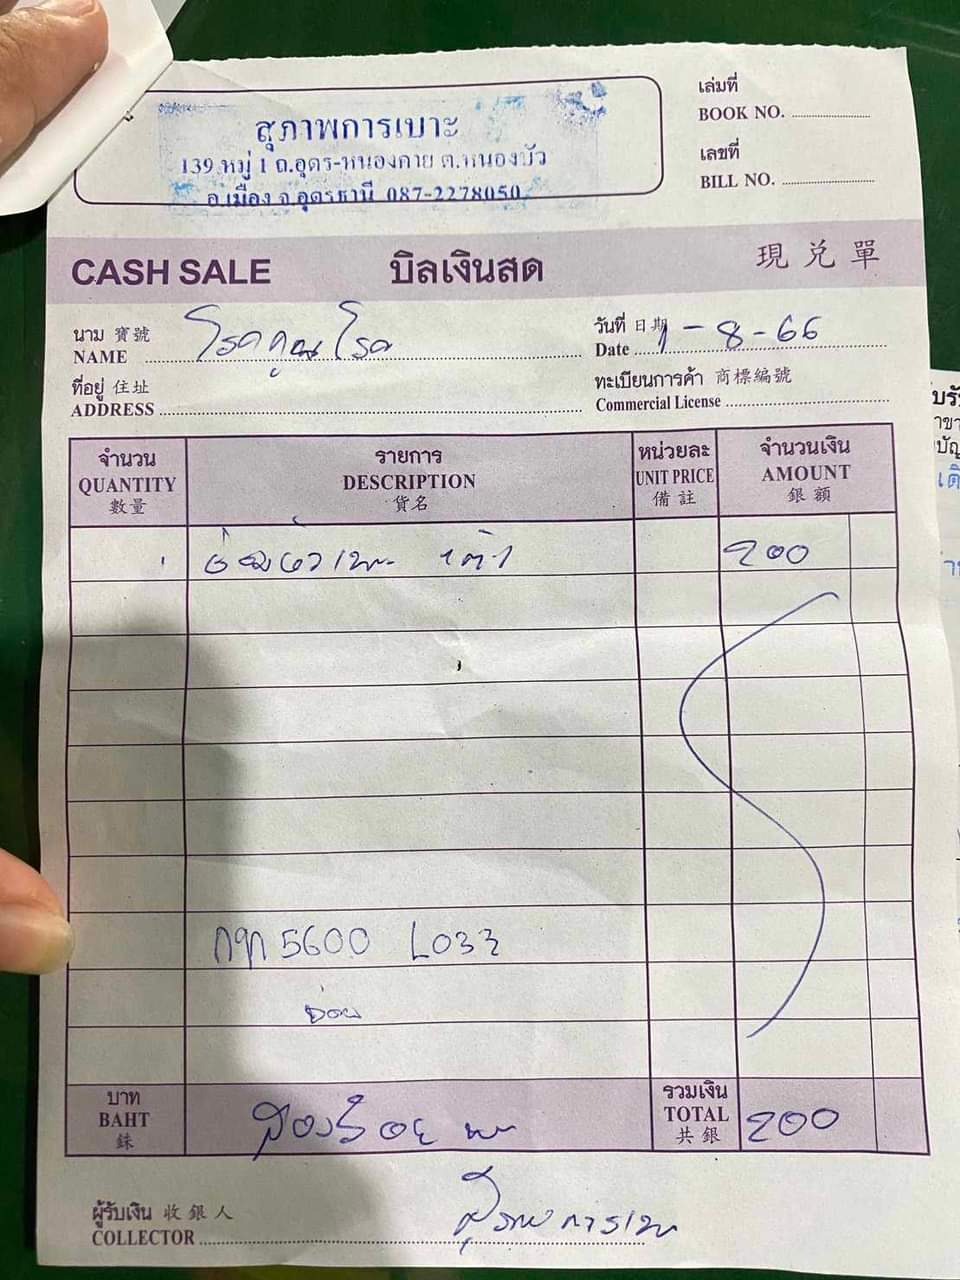 สุภาพการเบาะ
139 หมู่ 1 ถ.อุดร-หนองคาย ต.หนองบัว
อ.เมือง จ.อุดรธานี 087-2278050
เล่มที่
BOOK NO.
เลขที่
BILL NO.
CASH SALE บิลเงินสด 現兌單
นาม 寶號
NAME
วันที่ 日期
Date 1-8-66
ที่อยู่ 住址
ADDRESS
ทะเบียนการค้า 商標編號
Commercial License
จำนวน รายการ หน่วยละ จำนวนเงิน
QUANTITY DESCRIPTION UNIT PRICE AMOUNT
數量 貨名 備註 銀額
1 ซ่อมตัวเบาะ 1 ตัว 200
5600 L033
บาท
BAHT
銖
สองร้อยบาท
รวมเงิน
TOTAL 200
共銀
ผู้รับเงิน 收銀人
COLLECTOR สุภาพการเบาะ